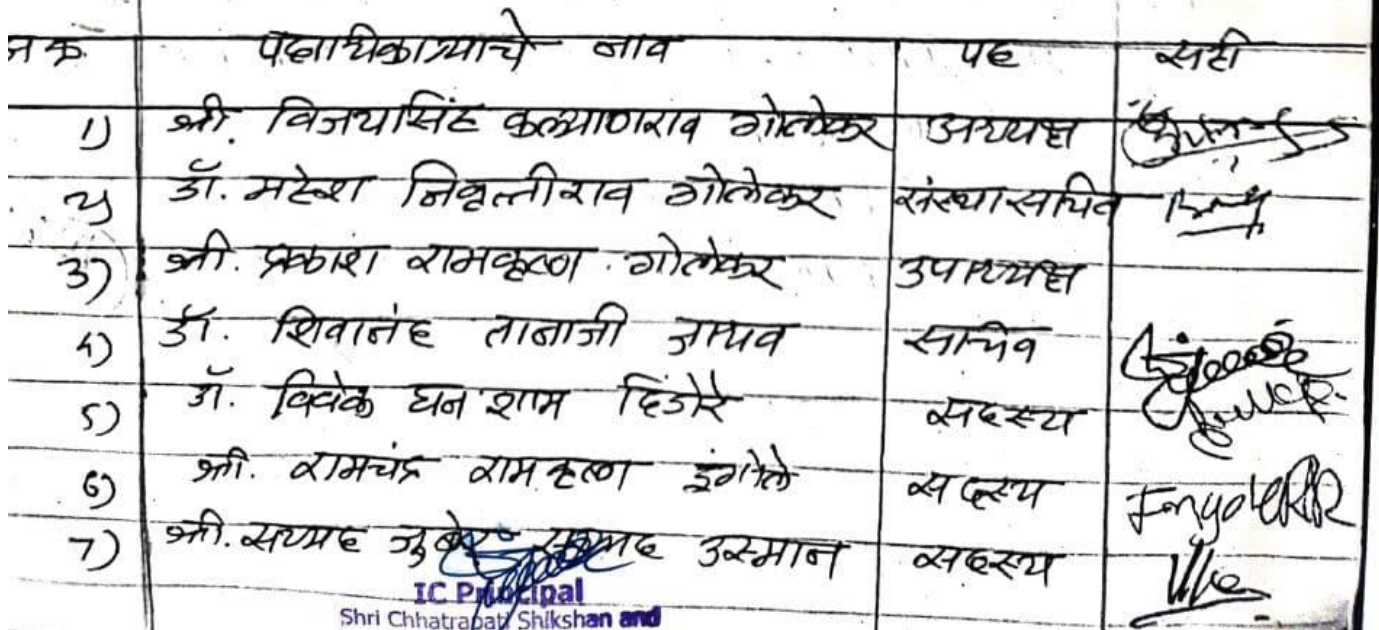 अ क्र. पदाधिकाऱ्याचे नाव पद सही
1) श्री. विजयसिंह कल्याणराव गोलेकर अध्यक्ष
2) डॉ. महेश निवृत्तीराव गोलेकर संस्था सचिव
3) श्री. प्रकाश रामकृष्ण गोलेकर उपाध्यक्ष
4) डॉ. शिवानंद तानाजी जाधव सचिव
5) डॉ. विवेक घनशाम दिंडोरे सदस्य
6) श्री. रामचंद्र रामकृष्ण इंगोले सदस्य IngoleRR
7) श्री. सय्यद जुबेर सय्यद उस्मान सदस्य
IC Principal
Shri Chhatrapati Shikshan and